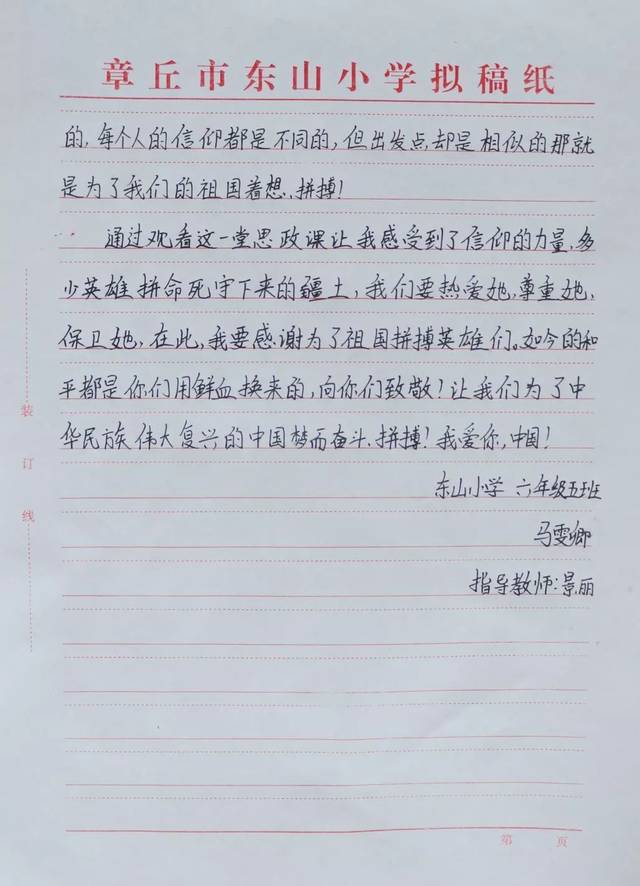 章丘市东山小学拟稿纸
的,每个人的信仰都是不同的,但出发点却是相似的那就
是为了我们的祖国着想、拼搏!
通过观看这一堂思政课让我感受到了信仰的力量,多
少英雄拼命死守下来的疆土,我们要热爱她,尊重她,
保卫她,在此,我要感谢为了祖国拼搏英雄们。如今的和
平都是你们用鲜血换来的,向你们致敬!让我们为了中
华民族伟大复兴的中国梦而奋斗、拼搏!我爱你,中国!
东山小学 六年级五班
马雯卿
指导教师:景丽
装
订
线
第 页